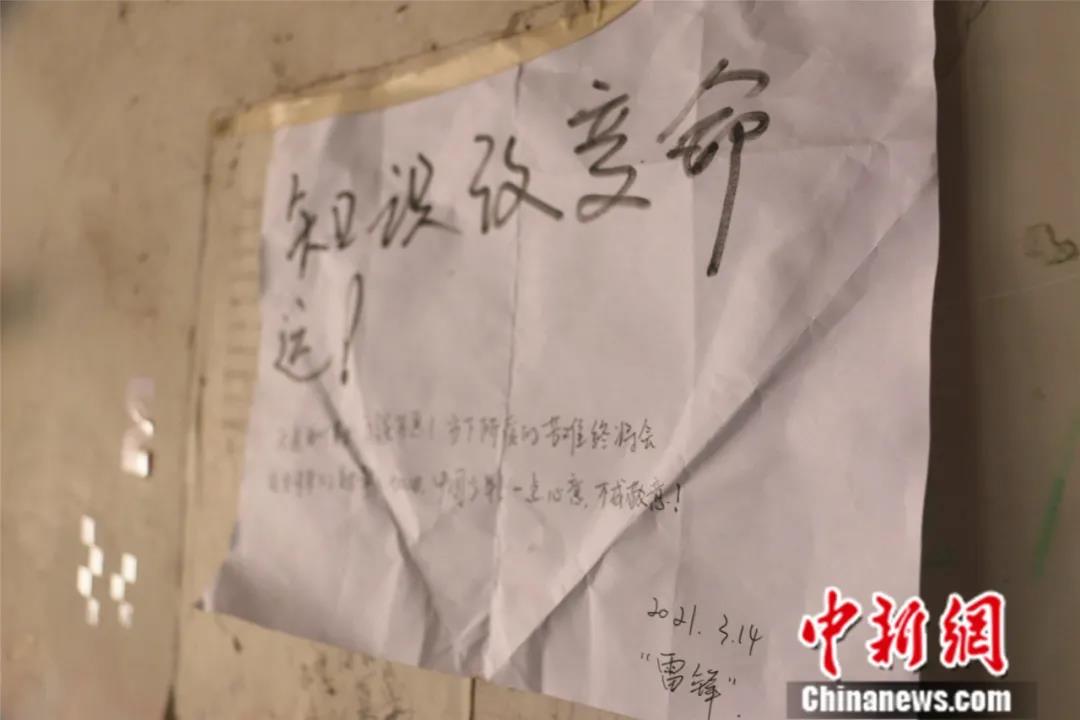 知识改变命
运！
！当下所受的苦难终将会
中国少年！一点心意，不成敬意！
2021.3.14
"雷锋".
中新網
Chinanews.com